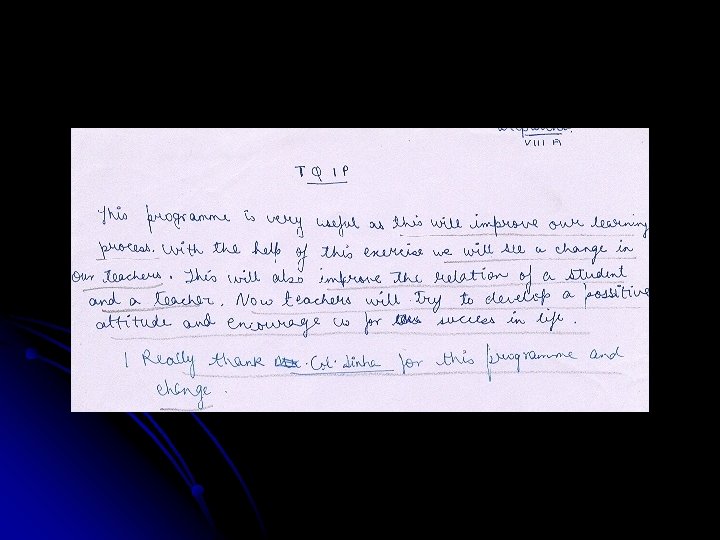 VIII A
TQIP
This programme is very useful as this will improve our learning
process. With the help of this exercise we will see a change in
our teachers. This will also improve the relation of a student
and a teacher. Now teachers will try to develop a possitive
attitude and encourage us for success in life.
I Really thank Col. Sinha for this programme and
change.